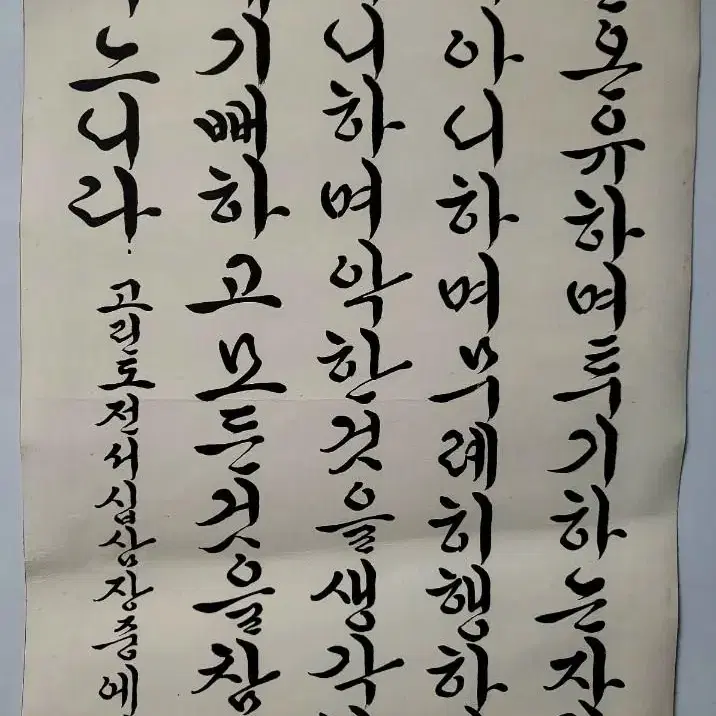 온유하며투기하는자
아니하며무례히행하
니하며악한것을생각
기뻐하고모든것을참
느니라
고린도전서십삼장중에